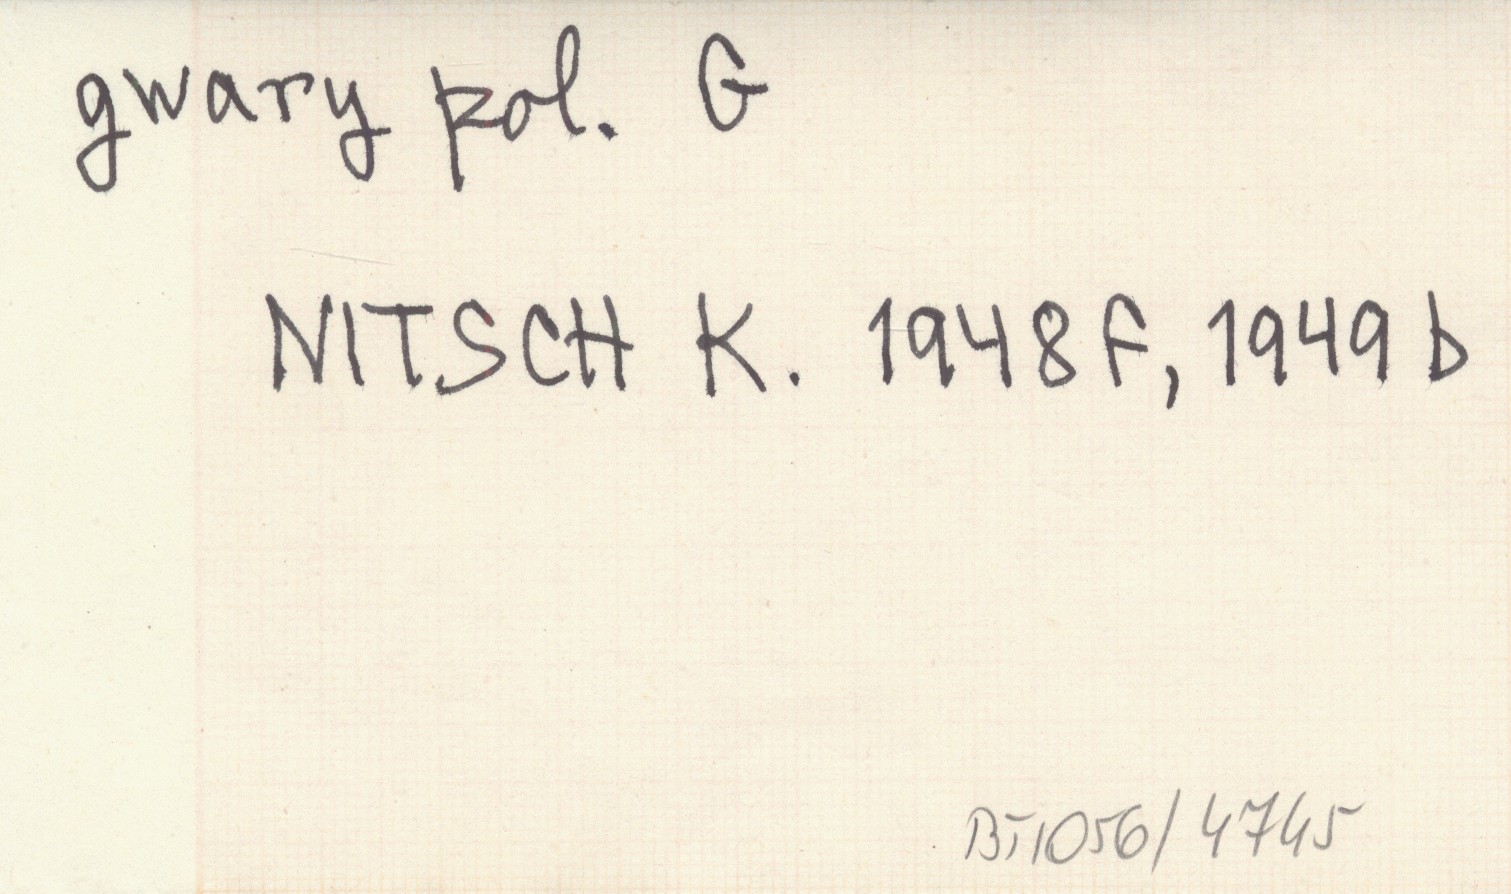 gwary pol. G
NITSCH K. 1948f, 1949b
BJ1056/4745